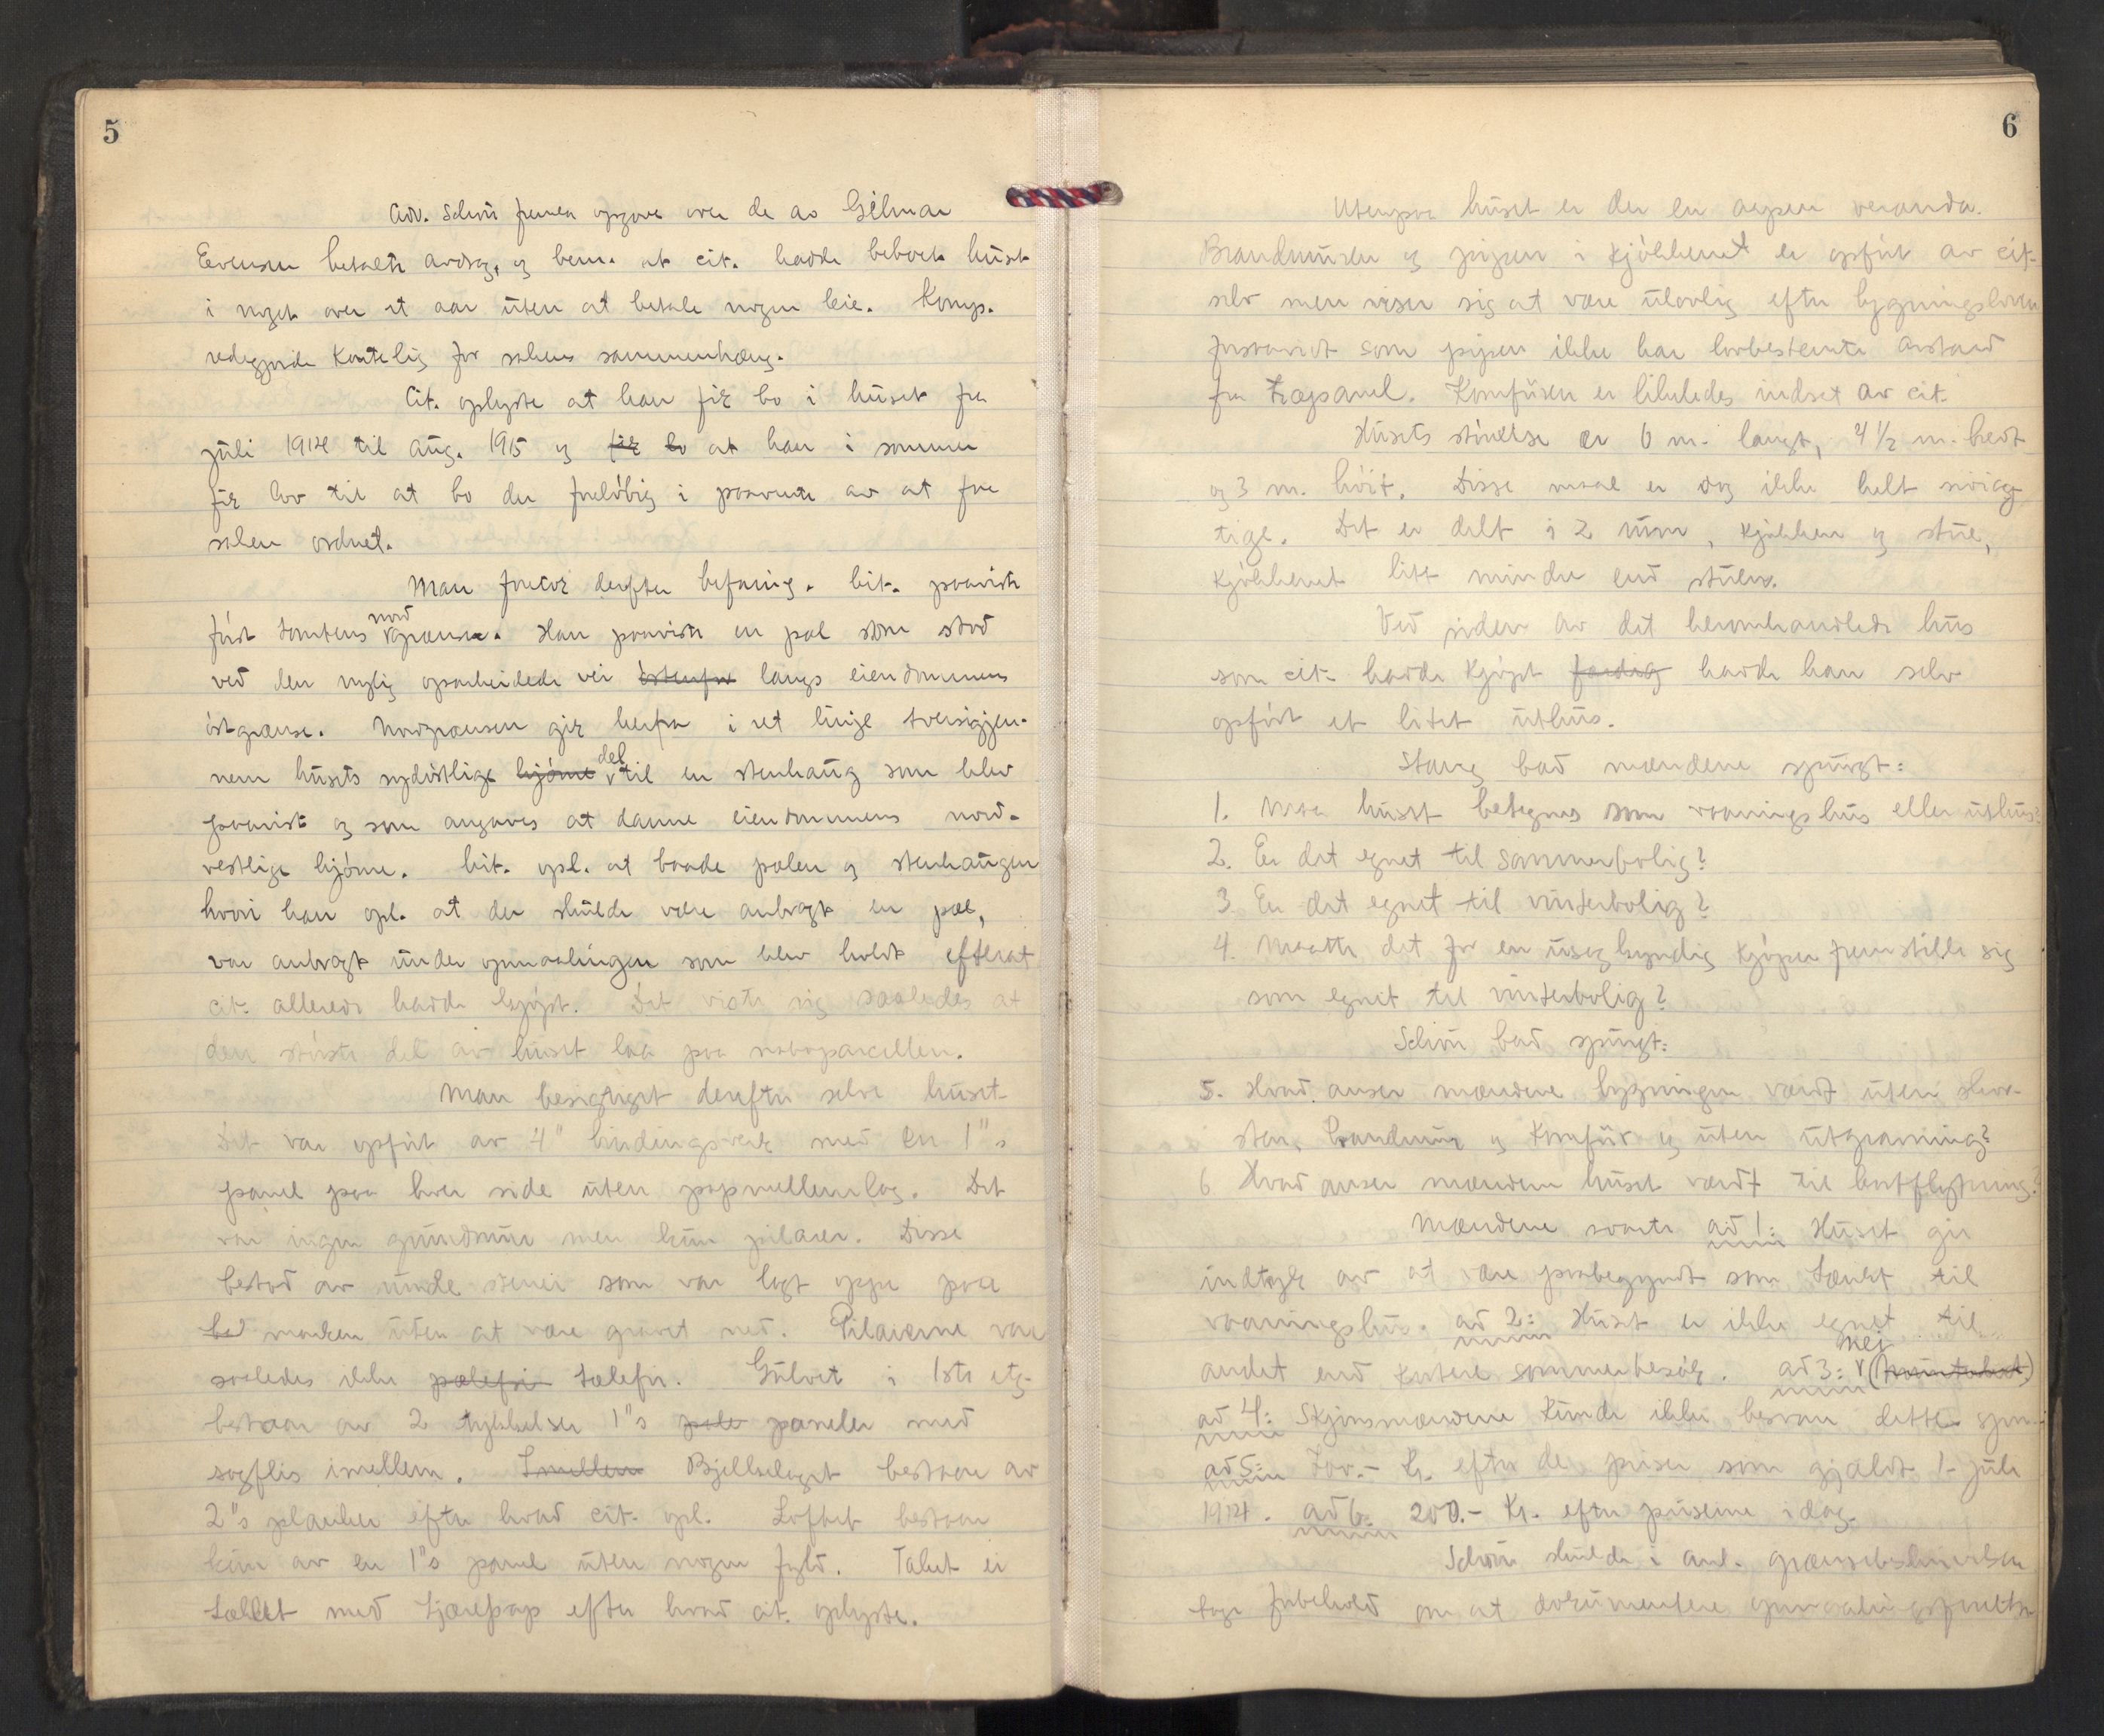 5
Adv. Schiri fremla opgave over de av Gilmar
Evensen betalte avdrag, og bem. at cit. hadde beboet huset
i noget over et aar uten at betale nogen leie. Komp.
redegjorde kortelig for sakens sammenhæng.
Cit. oplyste at han fik bo i huset fra
juli 1914 til aug. 1915 og fik bo at han i sommer
fik lov til at bo der foreløbig i paavente av at faa
saken ordnet.
Man foretok derefter befaring. Cit. paaviste
nord
først tomtens grænse. Han paaviste en pæl som stod
ved den nylig oparbeidede vei østenfor langs eiendommens
østgrænse. Nordgrænsen gik herfra i ret linje tversigjen-
del
nem husets sydøstlige hjørne til en stenhaug som blev
paavist og som angaves at danne eiendommens nord-
vestlige hjørne. Cit. opl. at baade pælen og stenhaugen
hvori han opl. at der skulde være anbragt en pæl,
var anbragt under opmaalingen som blev holdt efterat
cit. allerede hadde kjøpt. Det viste sig saaledes at
den største del av huset laa paa naboparcellen.
Man besigtiget derefter selve huset.
Det var opført av 4" bindingsverk med en 1"s
panel paa hver side uten papmellemlag. Det
var ingen grundmur men kun pilarer. Disse
bestod av runde stener som var lagt oppe paa
bed marken uten at være gravet ned. Pilarerne var
saaledes ikke pælefri tælefri. Gulvet i 1ste etg.
bestaar av 2 tykkelser 1"s paneler med
sagflis imellem. Imellem Bjelkelaget bestaar av
2"s planker efter hvad cit. opl. Loftet bestaar
kun av en 1"s panel uten nogen fyld. Taket er
tækket med tjærepap efter hvad cit. oplyste.
6
Utenpaa huset er der en aapen veranda.
Brandmuren og pipen i kjøkkenet er opført av cit.
selv men viser sig at være ulovlig efter bygningsloven
forsaavidt som pipen ikke har lovbestemte avstand
fra træpanel. Komfuren er likeledes indsat av cit.
Husets størrelse er 6 m. langt, 4 1/2 m. bredt
og 3 m. høit. Disse maal er dog ikke helt nøiag-
tige. Det er delt i 2 rum, kjøkken og stue,
kjøkkenet litt mindre end stuen.
Ved siden av det heromhandlede hus
som cit. hadde kjøpt færdig hadde han selv
opført et litet uthus.
Stang bad mændene spurgt:
1. Maa huset betegnes som vaaningshus eller uthus?
2. Er det egnet til sommerbolig?
3. Er det egnet til vinterbolig?
4. Maatte det for en usagkyndig kjøper fremstille sig
som egnet til vinterbolig?
Schiri bad spurgt:
5. Hvad anser mændene bygningen værdt uten skor-
sten, brandmur og komfur og uten utgravning?
6 Hvad anser mændene huset værdt til bortflytning?
Mændene svarte ad 1: Huset gir
indtryk av at være paabegyndt som tænkt til
vaaningshus. ad 2: Huset er ikke egnet til
nei
andet end kortere sommerbesøk. ad 3:
ad 4: Skjønsmændene kunde ikke besvare dette spm.
ad 5: Kr. efter de priser som gjaldt 1. juli
1914. ad 6: 200.- Kr. efter priserne idag.
Schiri skulde i anl. grænsebeskrivelsen
tage forbehold om at dokumentere opmaalingsforretn.